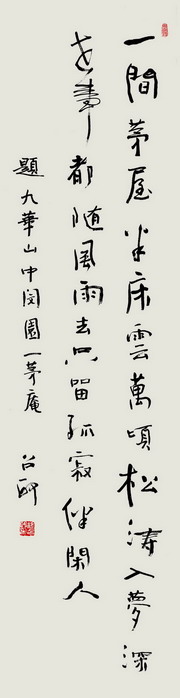 一間茅屋半床雲萬頃松濤入夢深
世事都随風雨去只留孤寂伴閑人
題九華山中闵園一茅庵